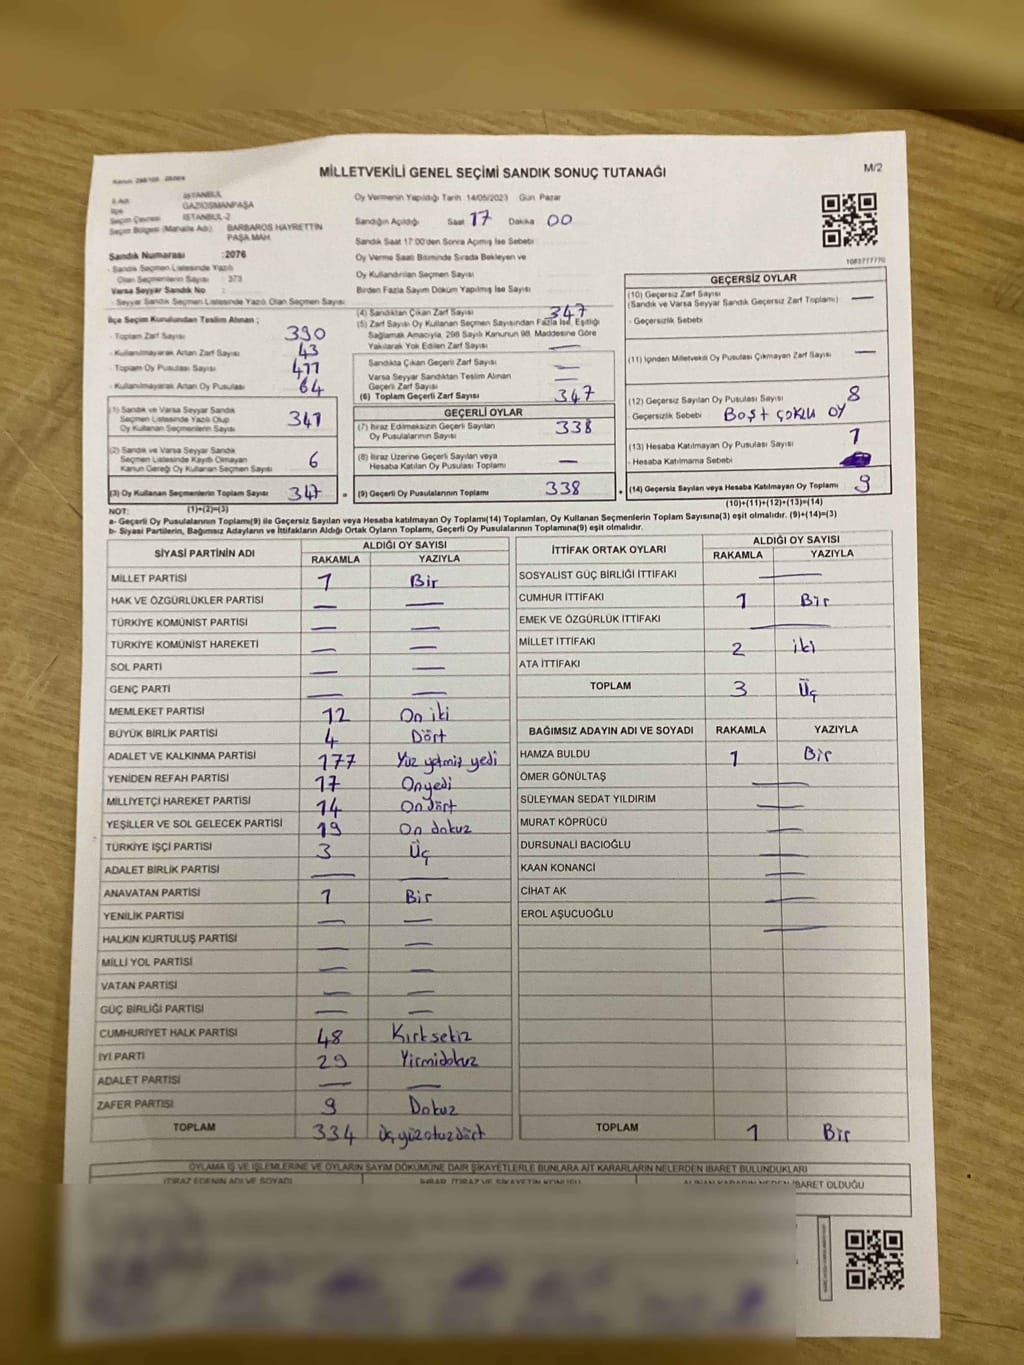 MİLLETVEKİLİ GENEL SEÇİMİ SANDIK SONUÇ TUTANAĞI
M/2
İli Adı İSTANBUL
İlçe GAZİOSMANPAŞA
Seçim Çevresi İSTANBUL-2
Seçim Bölgesi (Mahalle Adı) BARBAROS HAYRETTİN PAŞA MAH
Sandık Numarası :2076
- Sandık Seçmen Listesinde Yazılı
Olan Seçmenlerin Sayısı : 373
Varsa Seyyar Sandık No :
- Seyyar Sandık Seçmen Listesinde Yazılı Olan Seçmen Sayısı
Oy Vermenin Yapıldığı Tarih 14/05/2023 Gün Pazar
Sandığın Açıldığı Saat 17 Dakika 00
Sandık Saat 17:00'den Sonra Açmış İse Sebebi
Oy Verme Saati Bitiminde Sırada Bekleyen ve
Oy Kullandırılan Seçmen Sayısı
Birden Fazla Sayım Döküm Yapılmış İse Sayısı
1083777770
İlçe Seçim Kurulundan Teslim Alınan ;
- Toplam Zarf Sayısı 390
- Kullanılmayarak Artan Zarf Sayısı 43
- Toplam Oy Pusulası Sayısı 411
- Kullanılmayarak Artan Oy Pusulası 64
(1) Sandık ve Varsa Seyyar Sandık
Seçmen Listesinde Yazılı Olup
Oy Kullanan Seçmenlerin Sayısı 341
(2) Sandık ve Varsa Seyyar Sandık
Seçmen Listesinde Kayıtlı Olmayan
Kanun Gereği Oy Kullanan Seçmen Sayısı 6
(3) Oy Kullanan Seçmenlerin Toplam Sayısı 347
(4) Sandıktan Çıkan Zarf Sayısı 347
(5) Zarf Sayısı Oy Kullanan Seçmen Sayısından Fazla İse, Eşitliği
Sağlamak Amacıyla, 298 Sayılı Kanunun 98. Maddesine Göre
Yakılarak Yok Edilen Zarf Sayısı —
Sandıkta Çıkan Geçerli Zarf Sayısı —
Varsa Seyyar Sandıktan Teslim Alınan
Geçerli Zarf Sayısı —
(6) Toplam Geçerli Zarf Sayısı 347
GEÇERLİ OYLAR
(7) İtiraz Edilmeksizin Geçerli Sayılan
Oy Pusulalarının Sayısı 338
(8) İtiraz Üzerine Geçerli Sayılan veya
Hesaba Katılan Oy Pusulası Toplamı —
= (9) Geçerli Oy Pusulalarının Toplamı 338
GEÇERSİZ OYLAR
(10) Geçersiz Zarf Sayısı —
(Sandık ve Varsa Seyyar Sandık Geçersiz Zarf Toplamı)
- Geçersizlik Sebebi
(11) İçinden Milletvekili Oy Pusulası Çıkmayan Zarf Sayısı —
(12) Geçersiz Sayılan Oy Pusulası Sayısı 8
- Geçersizlik Sebebi Boş+çoklu oy
(13) Hesaba Katılmayan Oy Pusulası Sayısı 1
- Hesaba Katılmama Sebebi
+ (14) Geçersiz Sayılan veya Hesaba Katılmayan Oy Toplamı 9
NOT: (1)+(2)=(3)
(10)+(11)+(12)+(13)=(14)
a- Geçerli Oy Pusulalarının Toplamı(9) ile Geçersiz Sayılan veya Hesaba katılmayan Oy Toplamı(14) Toplamları, Oy Kullanan Seçmenlerin Toplam Sayısına(3) eşit olmalıdır. (9)+(14)=(3)
b- Siyasi Partilerin, Bağımsız Adayların ve İttifakların Aldığı Ortak Oyların Toplamı, Geçerli Oy Pusulalarının Toplamına(9) eşit olmalıdır.
SİYASİ PARTİNİN ADI ALDIĞI OY SAYISI
RAKAMLA YAZIYLA
MİLLET PARTİSİ 1 Bir
HAK VE ÖZGÜRLÜKLER PARTİSİ — —
TÜRKİYE KOMÜNİST PARTİSİ — —
TÜRKİYE KOMÜNİST HAREKETİ — —
SOL PARTİ — —
GENÇ PARTİ — —
MEMLEKET PARTİSİ 12 On iki
BÜYÜK BİRLİK PARTİSİ 4 Dört
ADALET VE KALKINMA PARTİSİ 177 Yüz yetmiş yedi
YENİDEN REFAH PARTİSİ 17 Onyedi
MİLLİYETÇİ HAREKET PARTİSİ 14 On dört
YEŞİLLER VE SOL GELECEK PARTİSİ 19 On dokuz
TÜRKİYE İŞÇİ PARTİSİ 3 Üç
ADALET BİRLİK PARTİSİ — —
ANAVATAN PARTİSİ 1 Bir
YENİLİK PARTİSİ — —
HALKIN KURTULUŞ PARTİSİ — —
MİLLİ YOL PARTİSİ — —
VATAN PARTİSİ — —
GÜÇ BİRLİĞİ PARTİSİ — —
CUMHURİYET HALK PARTİSİ 48 Kırksekiz
İYİ PARTİ 29 Yirmidokuz
ADALET PARTİSİ — —
ZAFER PARTİSİ 9 Dokuz
TOPLAM 334 Üçyüzotuzdört
İTTİFAK ORTAK OYLARI ALDIĞI OY SAYISI
RAKAMLA YAZIYLA
SOSYALİST GÜÇ BİRLİĞİ İTTİFAKI —
CUMHUR İTTİFAKI 1 Bir
EMEK VE ÖZGÜRLÜK İTTİFAKI —
MİLLET İTTİFAKI 2 iki
ATA İTTİFAKI
TOPLAM 3 Üç
BAĞIMSIZ ADAYIN ADI VE SOYADI RAKAMLA YAZIYLA
HAMZA BULDU 1 Bir
ÖMER GÖNÜLTAŞ —
SÜLEYMAN SEDAT YILDIRIM —
MURAT KÖPRÜCÜ —
DURSUNALİ BACIOĞLU —
KAAN KONANCİ —
CİHAT AK —
EROL AŞUCUOĞLU —
TOPLAM 1 Bir
OYLAMA İŞ VE İŞLEMLERİNE VE OYLARIN SAYIM DÖKÜMÜNE DAİR ŞİKAYETLERLE BUNLARA AİT KARARLARIN NELERDEN İBARET BULUNDUKLARI
İTİRAZ EDENİN ADI VE SOYADI
İHBAR, İTİRAZ VE ŞİKAYETİN KONUSU
ALINAN KARARIN NEDEN İBARET OLDUĞU